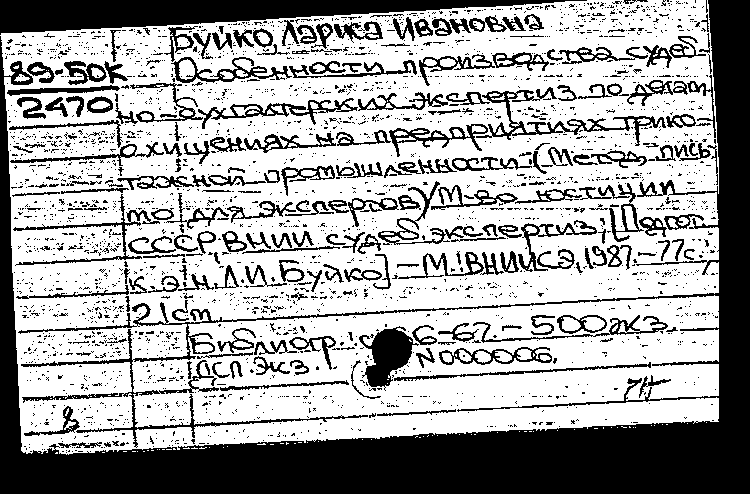 Буйко, Лариса Ивановна
89-50К
2470
Особенности производства судеб-
но-бухгалтерских экспертиз по делам
о хищениях на предприятиях трико-
тажной промышленности: (Метод. пись-
мо для экспертов)/М-во юстиции
СССР, ВНИИ судеб. экспертиз; [Подгот.
к.э.н. Л.И. Буйко]. - М.: ВНИИСЭ, 1987. - 77с.;
21см.
Библиогр.: с. 66-67. - 500 экз.
ДСП. Экз. N 000006.
8